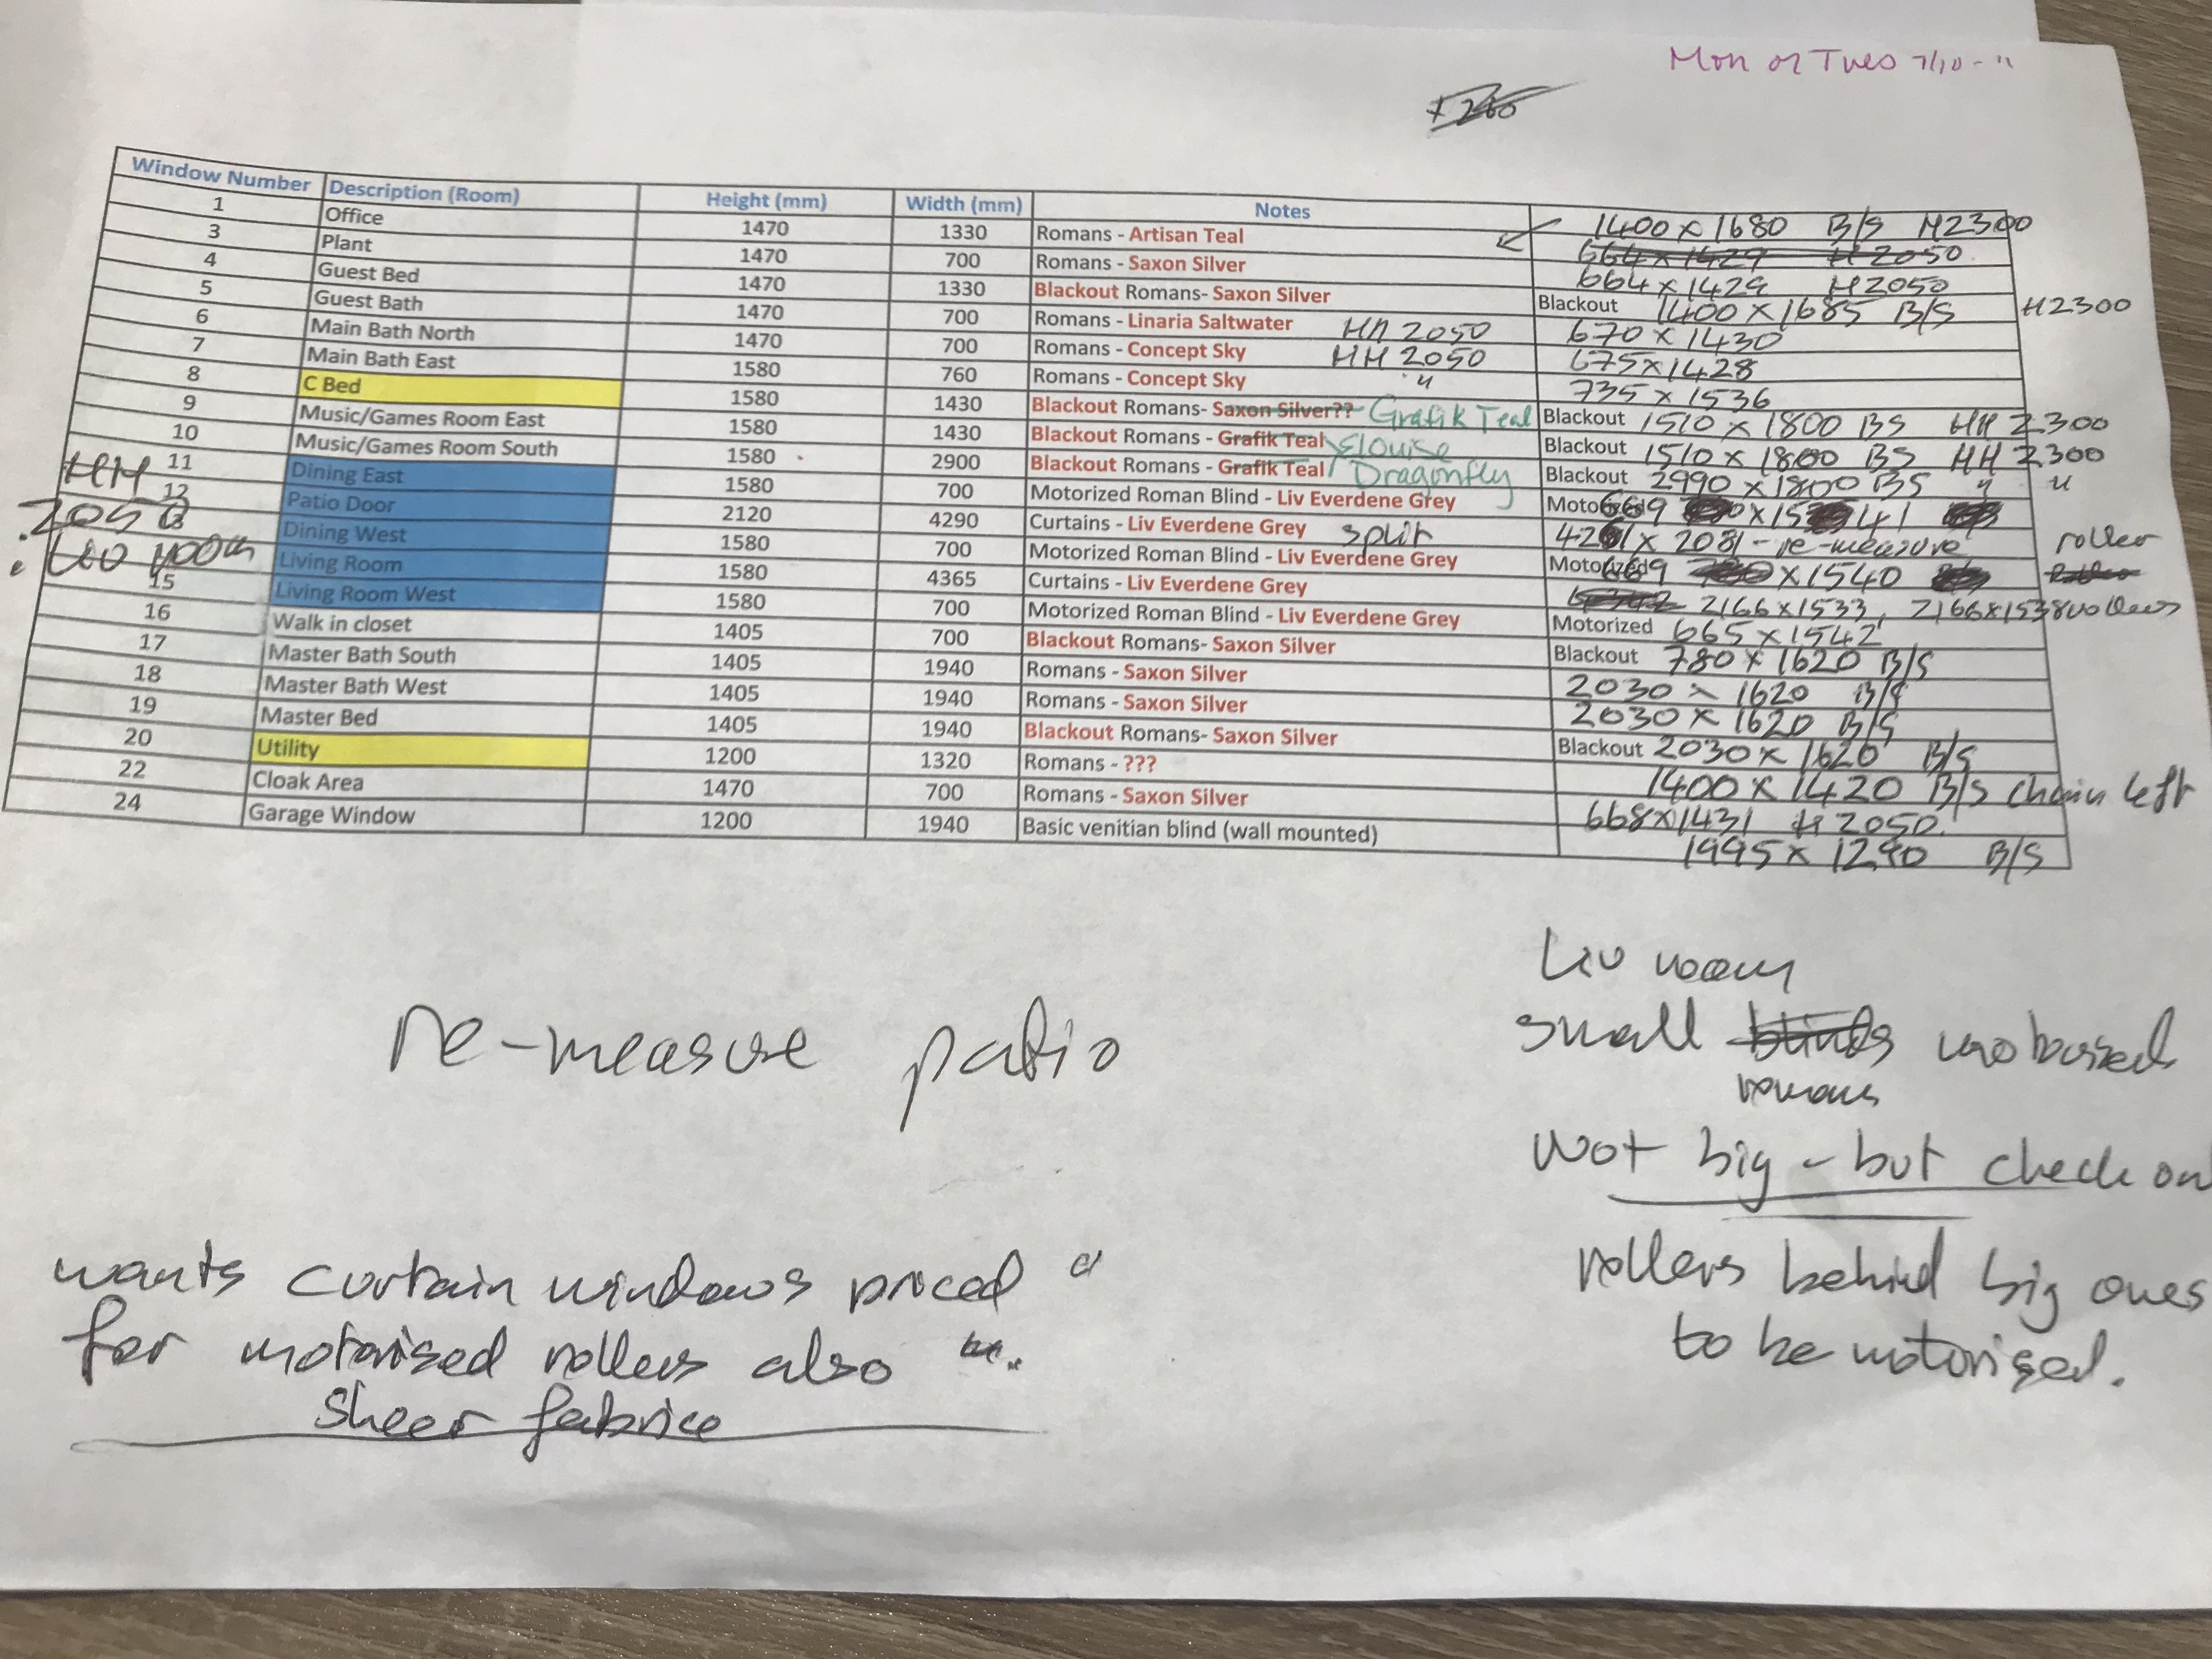 Mon or Tues 7/10 - "
+ 260
Window Number Description (Room) Height (mm) Width (mm) Notes
1 Office 1470 1330 Romans - Artisan Teal 1400 x 1680 B/S H2300
664 x 1429 H2050
3 Plant 1470 700 Romans - Saxon Silver 664 x 1429 H2050
4 Guest Bed 1470 1330 Blackout Romans- Saxon Silver Blackout 1400 x 1685 B/S H2300
5 Guest Bath 1470 700 Romans - Linaria Saltwater HH 2050 670 x 1430
6 Main Bath North 1470 700 Romans - Concept Sky HH 2050 675 x 1428
7 Main Bath East 1580 760 Romans - Concept Sky " 735 x 1536
8 C Bed 1580 1430 Blackout Romans- Saxon Silver?? Grafik Teal Blackout 1510 x 1800 BS HH 2300
9 Music/Games Room East 1580 1430 Blackout Romans - Grafik Teal Elouise Blackout 1510 x 1800 BS HH 2300
10 Music/Games Room South 1580 2900 Blackout Romans - Grafik Teal Dragonfly Blackout 2990 x 1800 BS " "
11 Dining East 1580 700 Motorized Roman Blind - Liv Everdene Grey Motorized 669 x 1541
12 Patio Door 2120 4290 Curtains - Liv Everdene Grey split 4261 x 2081 - re-measure roller
Dining West 1580 700 Motorized Roman Blind - Liv Everdene Grey Motorized 669 x 1540
Living Room 1580 4365 Curtains - Liv Everdene Grey 2166 x 1533, 2166 x 1538 rollers
15 Living Room West 1580 700 Motorized Roman Blind - Liv Everdene Grey Motorized 665 x 1542
16 Walk in closet 1405 700 Blackout Romans- Saxon Silver Blackout 780 x 1620 B/S
17 Master Bath South 1405 1940 Romans - Saxon Silver 2030 x 1620 B/S
18 Master Bath West 1405 1940 Romans - Saxon Silver 2030 x 1620 B/S
19 Master Bed 1405 1940 Blackout Romans- Saxon Silver Blackout 2030 x 1620 B/S
20 Utility 1200 1320 Romans - ??? 1400 x 1420 B/S chain left
22 Cloak Area 1470 700 Romans - Saxon Silver 668 x 1431 H 2050.
24 Garage Window 1200 1940 Basic venitian blind (wall mounted) 1995 x 1290 B/S
HH
2050
Liv room
re-measure patio
Liv room
small blinds motorised
romans
not big - but check on
rollers behind big ones
to be motorised.
wants curtain windows priced
for motorised rollers also
sheer fabrice